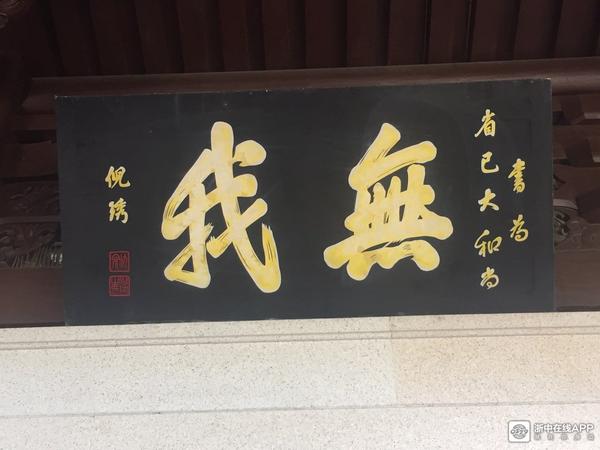 書为
省已大和尚
無我
倪琇
浙中在线APP